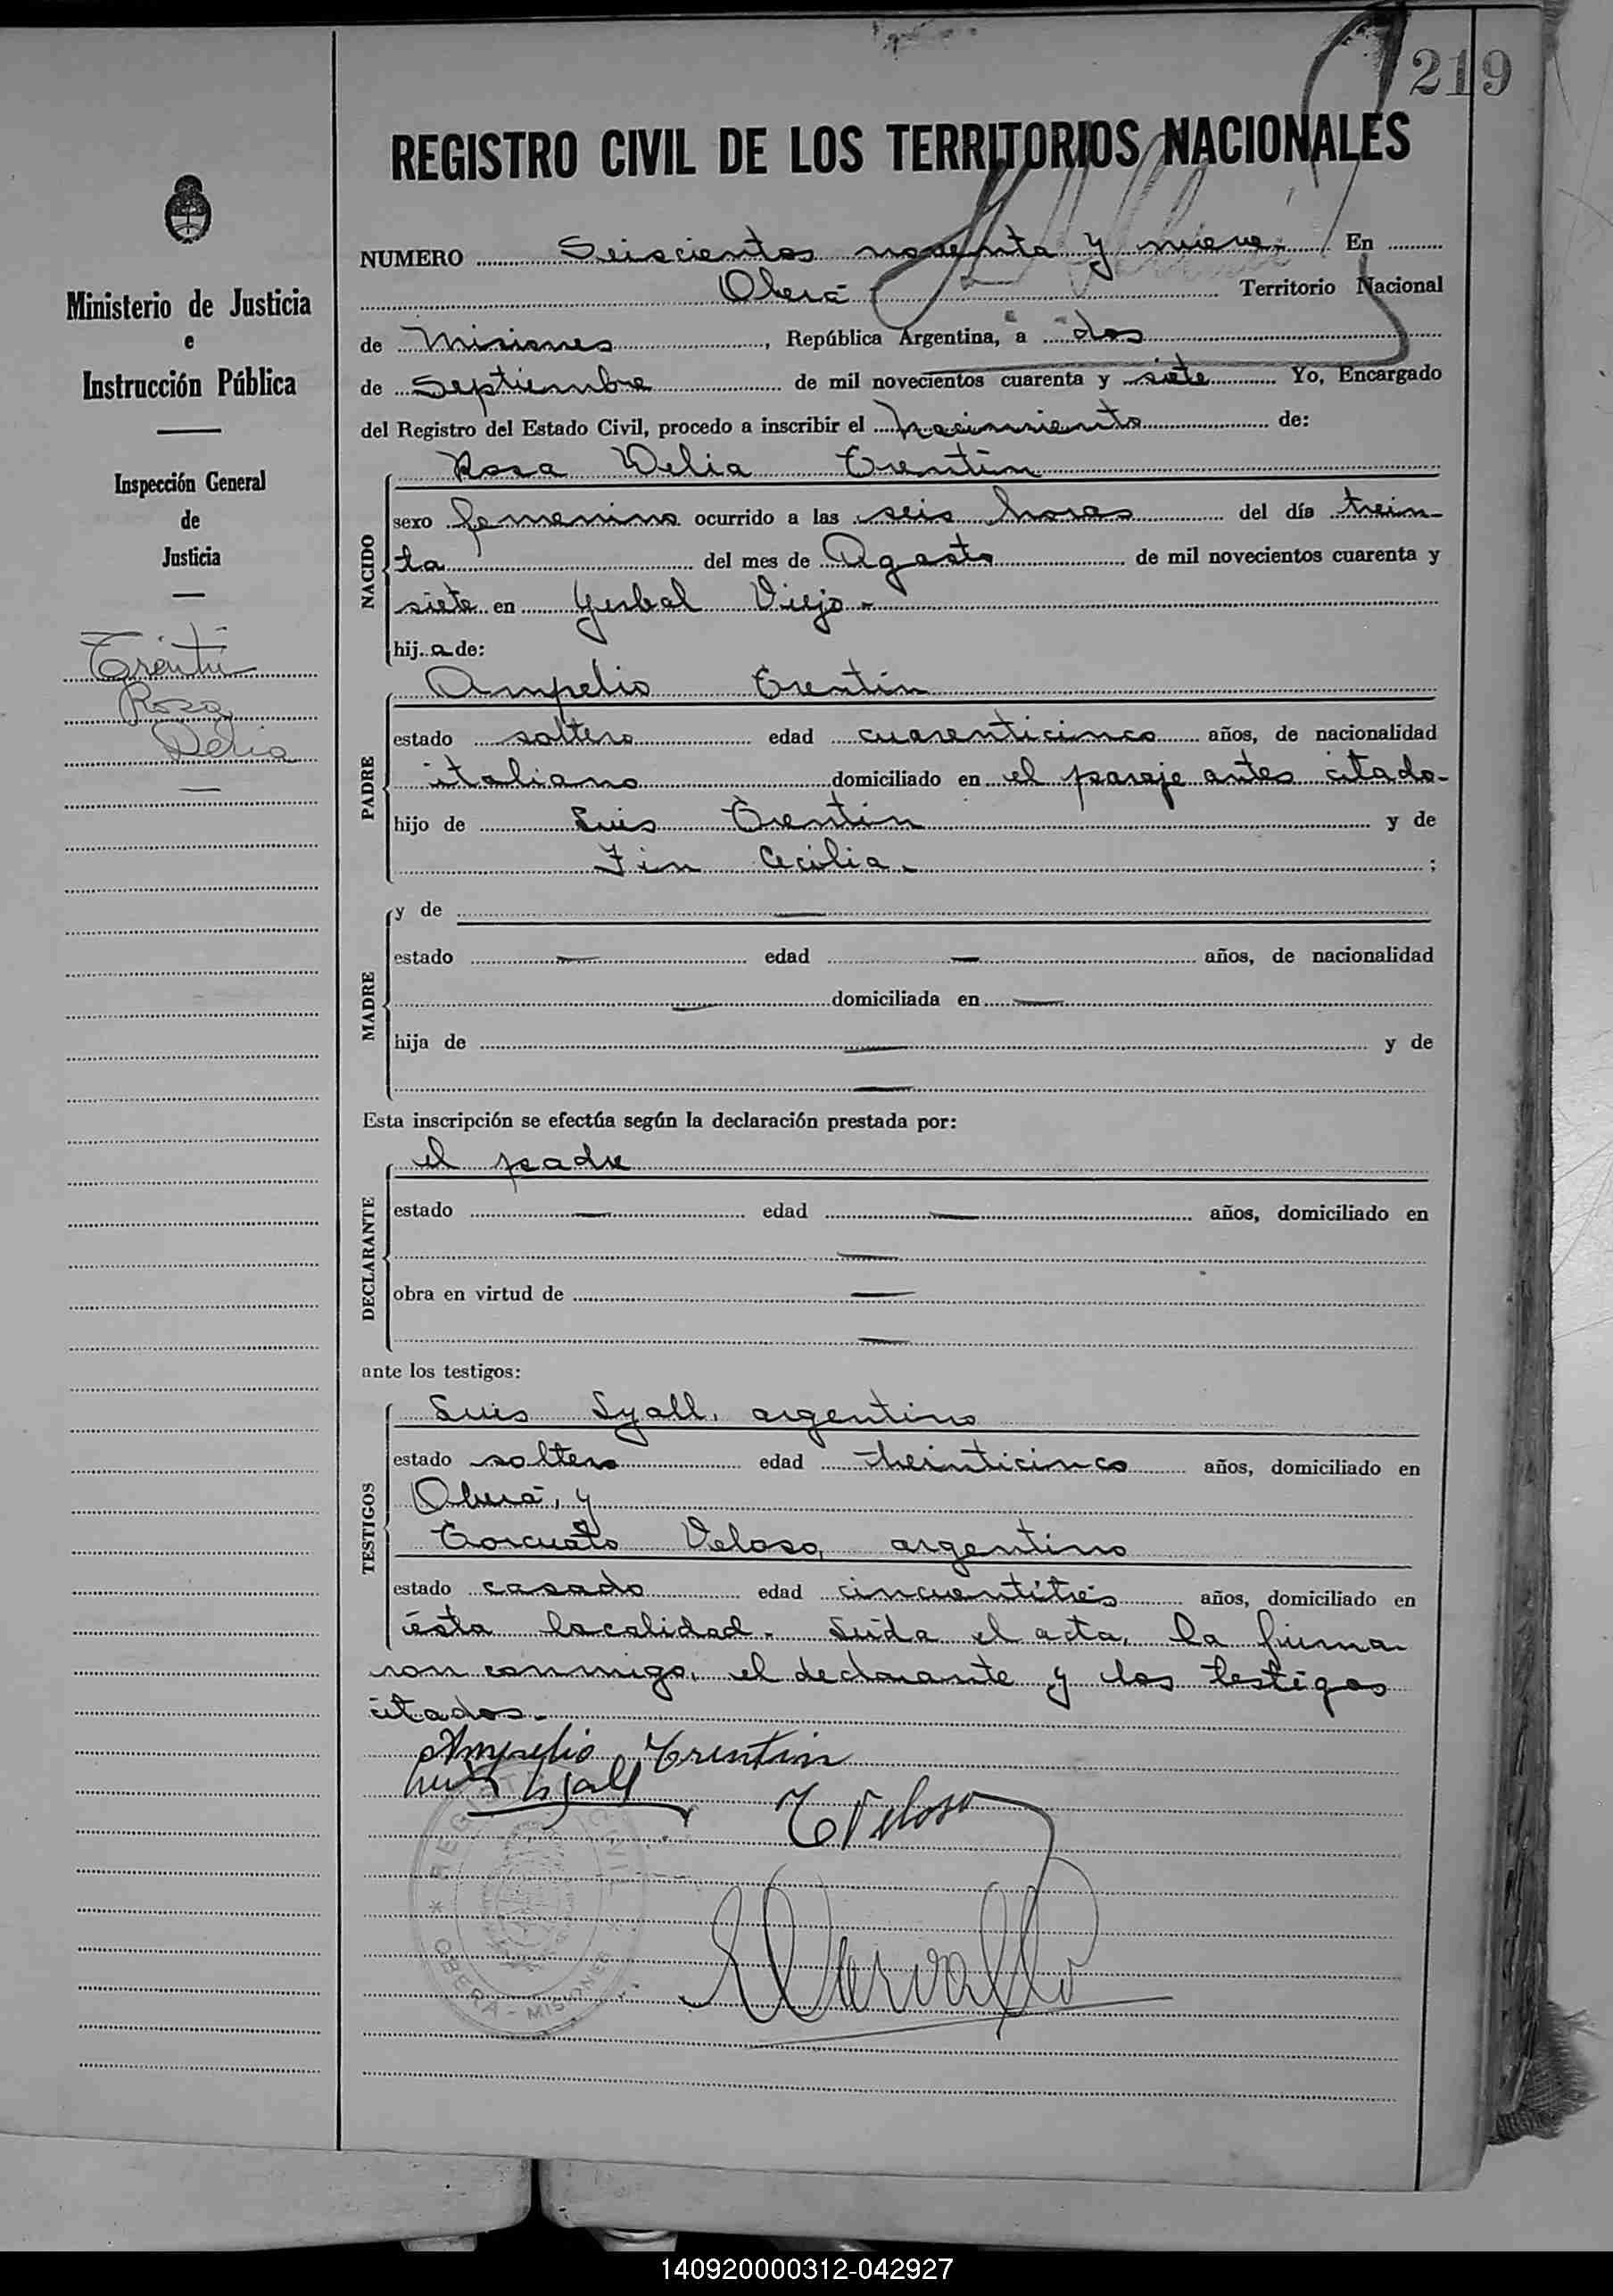 219
REGISTRO CIVIL DE LOS TERRITORIOS NACIONALES
NUMERO Seiscientos noventa y nueve.- En
Oberá Territorio Nacional
de Misiones, República Argentina, a dos
de Septiembre de mil novecientos cuarenta y siete Yo, Encargado
del Registro del Estado Civil, procedo a inscribir el nacimiento de:
Ministerio de Justicia
e
Instrucción Pública
Inspección General
de
Justicia
Trentin
Rosa
Delia
NACIDO
Rosa Delia Trentin
sexo femenino ocurrido a las seis horas del día trein-
ta del mes de Agosto de mil novecientos cuarenta y
siete en Yerbal Viejo-
hij a de:
PADRE
Ampelio Trentin
estado soltero edad cuarenticinco años, de nacionalidad
italiano domiciliado en el paraje antes citado-
hijo de Luis Trentin y de
Fin Cecilia. ;
MADRE
y de —
estado — edad — años, de nacionalidad
— domiciliada en —
hija de — y de
—
Esta inscripción se efectúa según la declaración prestada por:
DECLARANTE
el padre
estado — edad — años, domiciliado en
—
obra en virtud de —
—
ante los testigos:
TESTIGOS
Luis Lyall, argentino
estado soltero edad treinticinco años, domiciliado en
Oberá, y
Torcuato Veloso, argentino
estado casado edad cincuentitrés años, domiciliado en
ésta localidad. Leída el acta, la firma-
ron conmigo, el declarante y los testigos
citados.-
Ampelio Trentin
Luis Lyall
T Veloso
REGISTRO CIVIL
OBERA - MISIONES
140920000312-042927